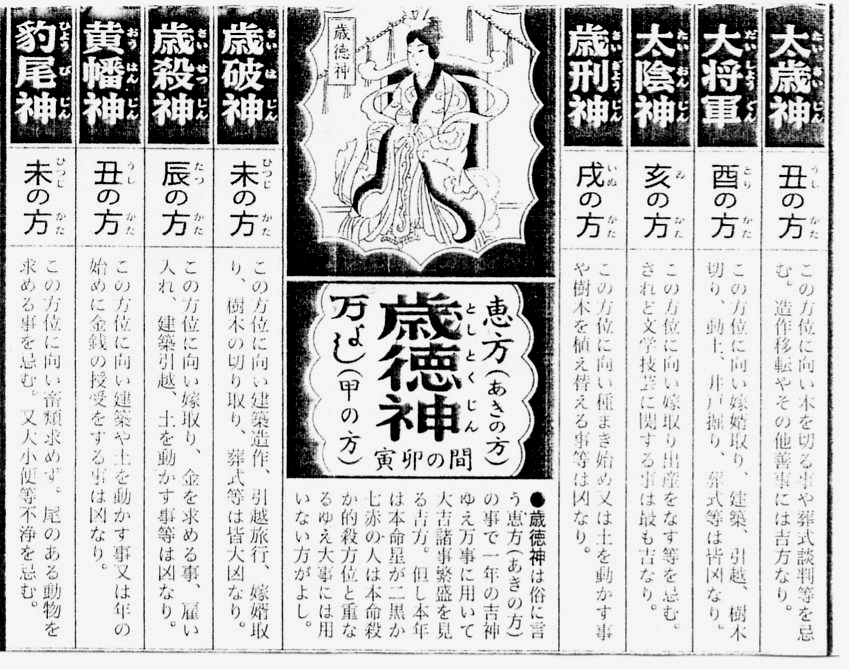 太歳神
たいさいじん
丑の方
うし かた
この方位に向い木を切る事や葬式談判等を忌
む。造作移転やその他善事には吉方なり。
大将軍
だいしょうぐん
酉の方
とり かた
この方位に向い嫁婿取り、建築、引越、樹木
切り、動土、井戸掘り、葬式等は皆凶なり。
太陰神
たいおんじん
亥の方
ゐ かた
この方位に向い嫁取り出産をなす等を忌む。
されど文学技芸に関する事は最も吉なり。
歳刑神
さいぎょうじん
戌の方
いぬ かた
この方位に向い種まき始め又は土を動かす事
や樹木を植え替える事等は凶なり。
歳徳神
恵方(あきの方)
歳徳神
としとくじん
万よし(甲の方)
寅卯の間
●歳徳神は俗に言
う恵方(あきの方)
の事で一年の吉神
ゆえ万事に用いて
大吉諸事繁盛を見
る吉方。但し本年
は本命星が二黒か
七赤の人は本命殺
か的殺方位と重な
るゆえ大事には用
いない方がよし。
歳破神
さいはじん
未の方
ひつじ かた
この方位に向い建築造作、引越旅行、嫁婿取
り、樹木の切り取り、葬式等は皆大凶なり。
歳殺神
さいせつじん
辰の方
たつ かた
この方位に向い嫁取り、金を求める事、雇い
入れ、建築引越、土を動かす事等は凶なり。
黄幡神
おうはんじん
丑の方
うし かた
この方位に向い建築や土を動かす事又は年の
始めに金銭の授受をする事は凶なり。
豹尾神
ひょうびじん
未の方
ひつじ かた
この方位に向い畜類求めず。尾のある動物を
求める事を忌む。又大小便等不浄を忌む。